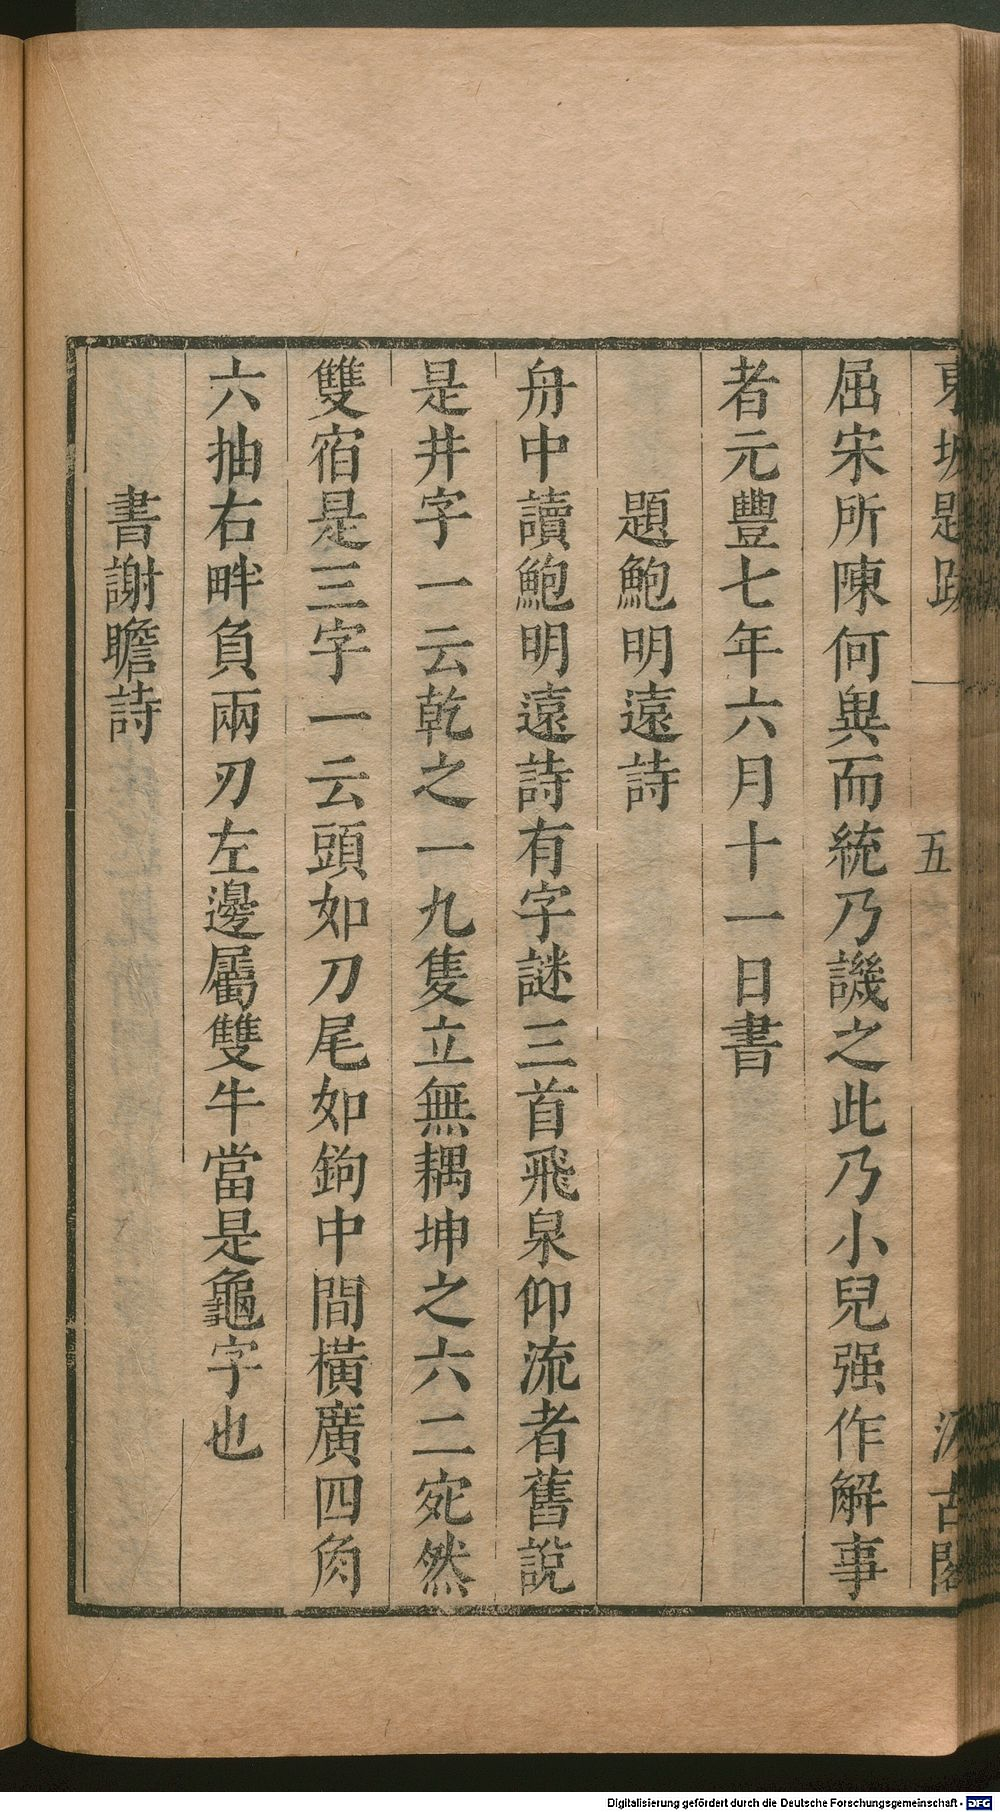 東坡題跋 一 五 汲古閣
屈宋所陳何異而統乃譏之此乃小兒强作解事
者元豐七年六月十一日書
題鮑明遠詩
舟中讀鮑明遠詩有字謎三首飛泉仰流者舊說
是井字一云乾之一九隻立無耦坤之六二宛然
雙宿是三字一云頭如刀尾如鉤中間橫廣四角
六抽右畔負兩刃左邊屬雙牛當是龜字也
書謝瞻詩
Digitalisierung gefördert durch die Deutsche Forschungsgemeinschaft - DFG